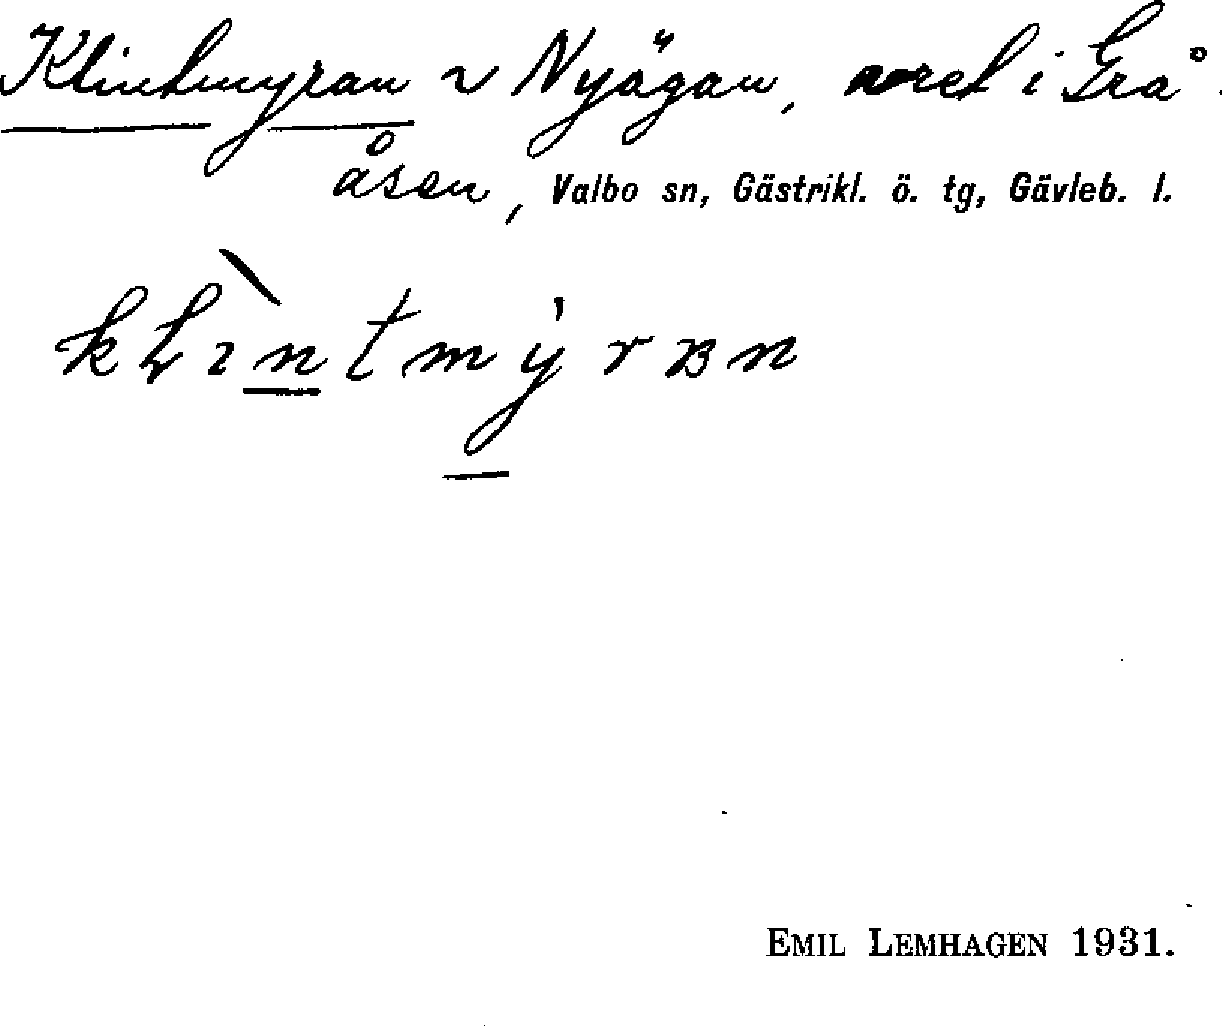 Klintmyran ~ Nyägan, avret i Grå
åsen, Valbo sn, Gästrikl. ö. tg, Gävleb. l.
EMIL LEMHAGEN 1931.